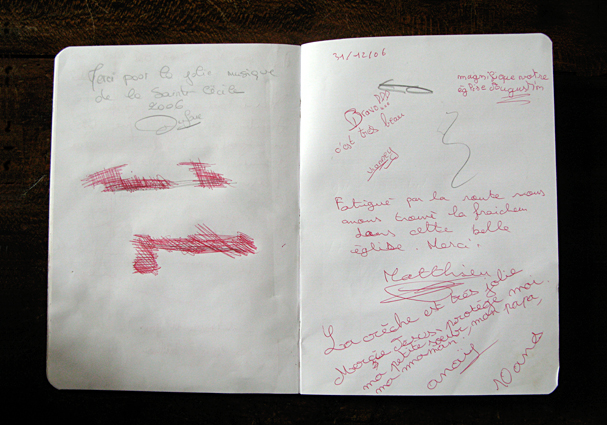 Merci pour la jolie musique
de la Sainte Cécile
2006
31/12/06
magnifique notre
église
Bravo
c'est très beau
Fatigué par la route nous
avons trouvé la fraicheur
dans cette belle
église. Merci.
Matthieu
La crèche est très jolie
Jesus protège moi
ma petite sœur, mon papa,
ma maman
10 ans